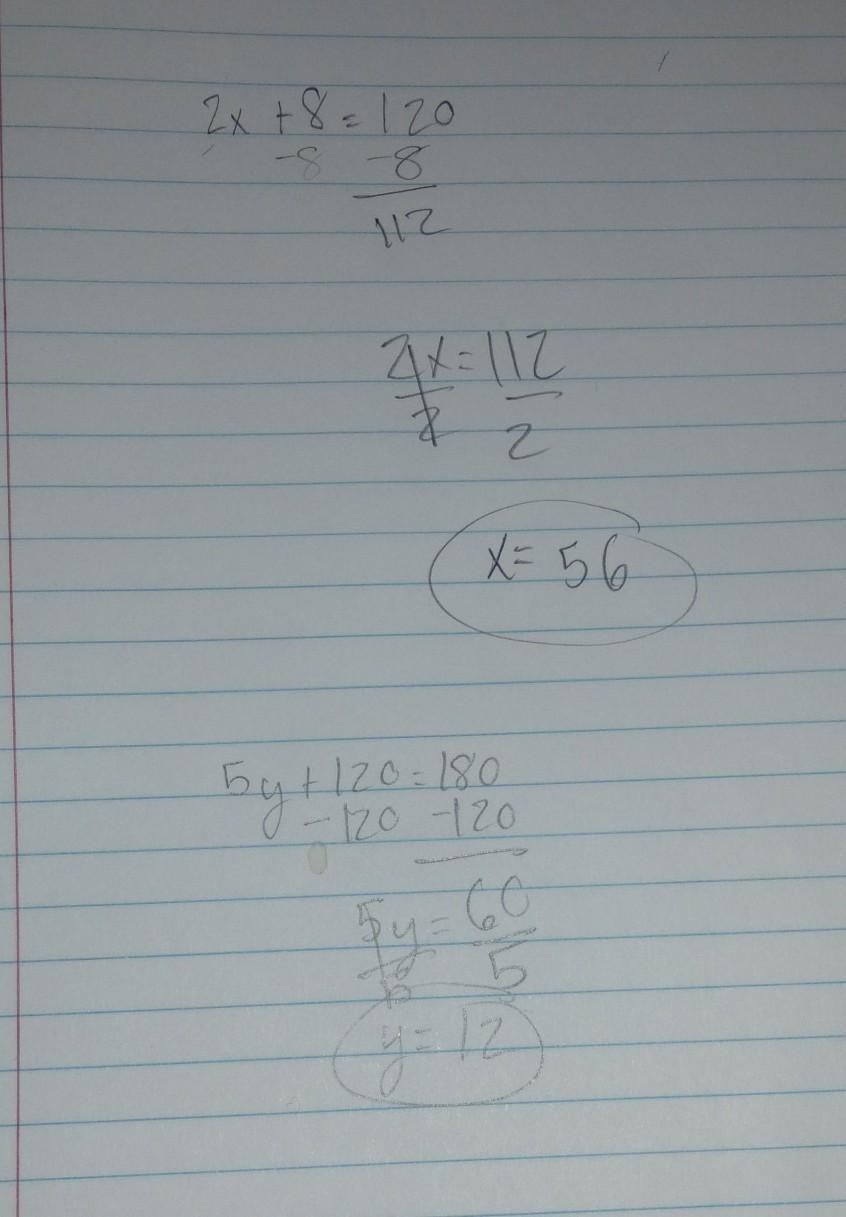 2x + 8 = 120
-8 -8
112
2x = 112
2 2
x = 56
5y + 120 = 180
-120 -120
5y = 60
5 5
y = 12